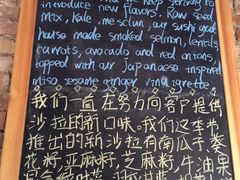 introduce new flavors. Raw seed
mix, kale, mesclun, our sushi grade
house made smoked salmon, lentils
carrots, avocado and red onions,
topped with our Japanese inspired
miso sesame ginger
我们一直在努力向客户提供
沙拉的新口味。我们这季当
推出的新沙拉有南瓜子葵
花籽,亚麻籽,芝麻籽,牛油果